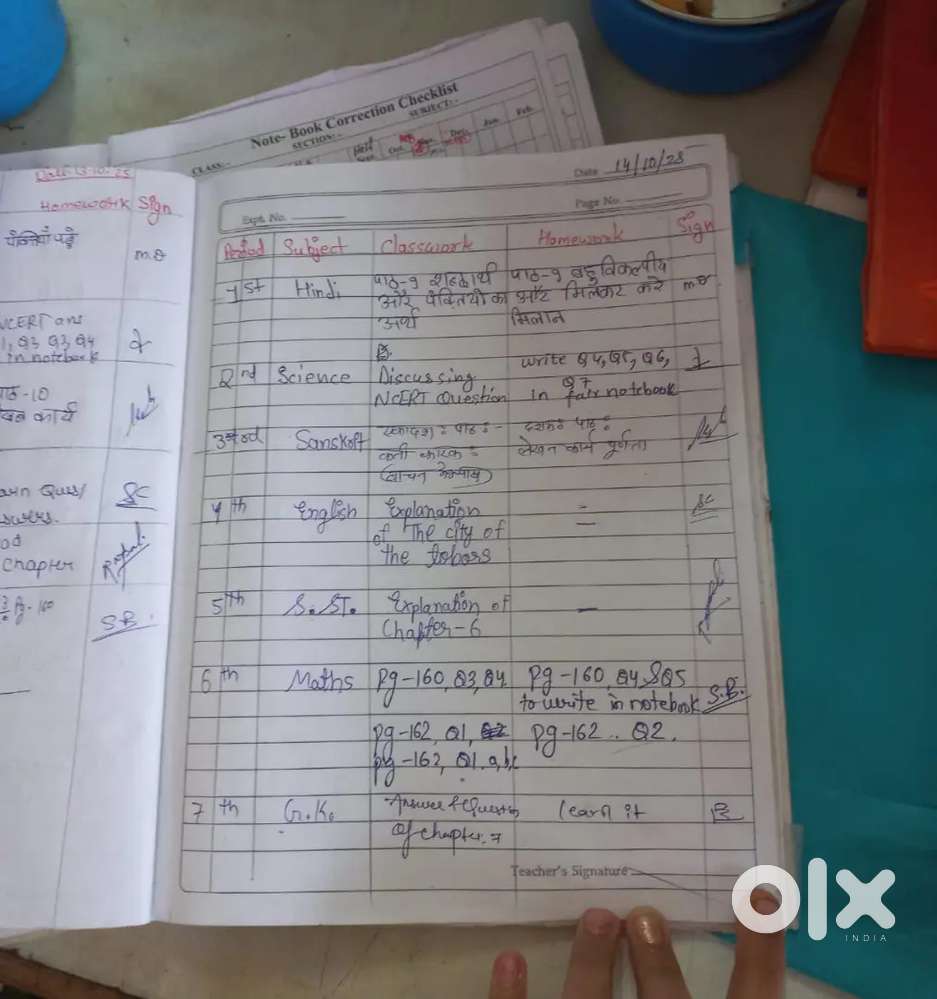 Note- Book Correction Checklist
CLASS:-
SECTION:-
SUBJECT:-
Jan
Feb
Date 14/10/25
Expt. No.
Page No.
Period Subject Classwork Homework Sign
1st Hindi पाठ-9 शब्दार्थ पाठ-9 बहुविकल्पीय
और पंक्तियों का और मिलकर करे
अर्थ मिलान
2nd Science Discussing write Q4, Q5, Q6,
NCERT Question in Q7 fair notebook
3rd Sanskrit एकादश: पाठ: - दशम: पाठ:
कर्ता कारक: लेखन कार्य पूर्णता
4th English Explanation -
of The city of
the
5th S.ST. Explanation of -
Chapter-6
6th Maths Pg-160, Q3, Q4 Pg-160, Q4 & Q5 S.B.
to write in notebook
pg-162, Q1, Pg-162.. Q2.
pg-162, Q1. a,b,c
7th G.K. Answer & Question learn it
of chapter. 7
Teacher's Signature
Homework Sign
NCERT ans
Q3 Q4
in notebook
पाठ-10
कार्य
Chapter
Pg-160
S.B.
olx
INDIA